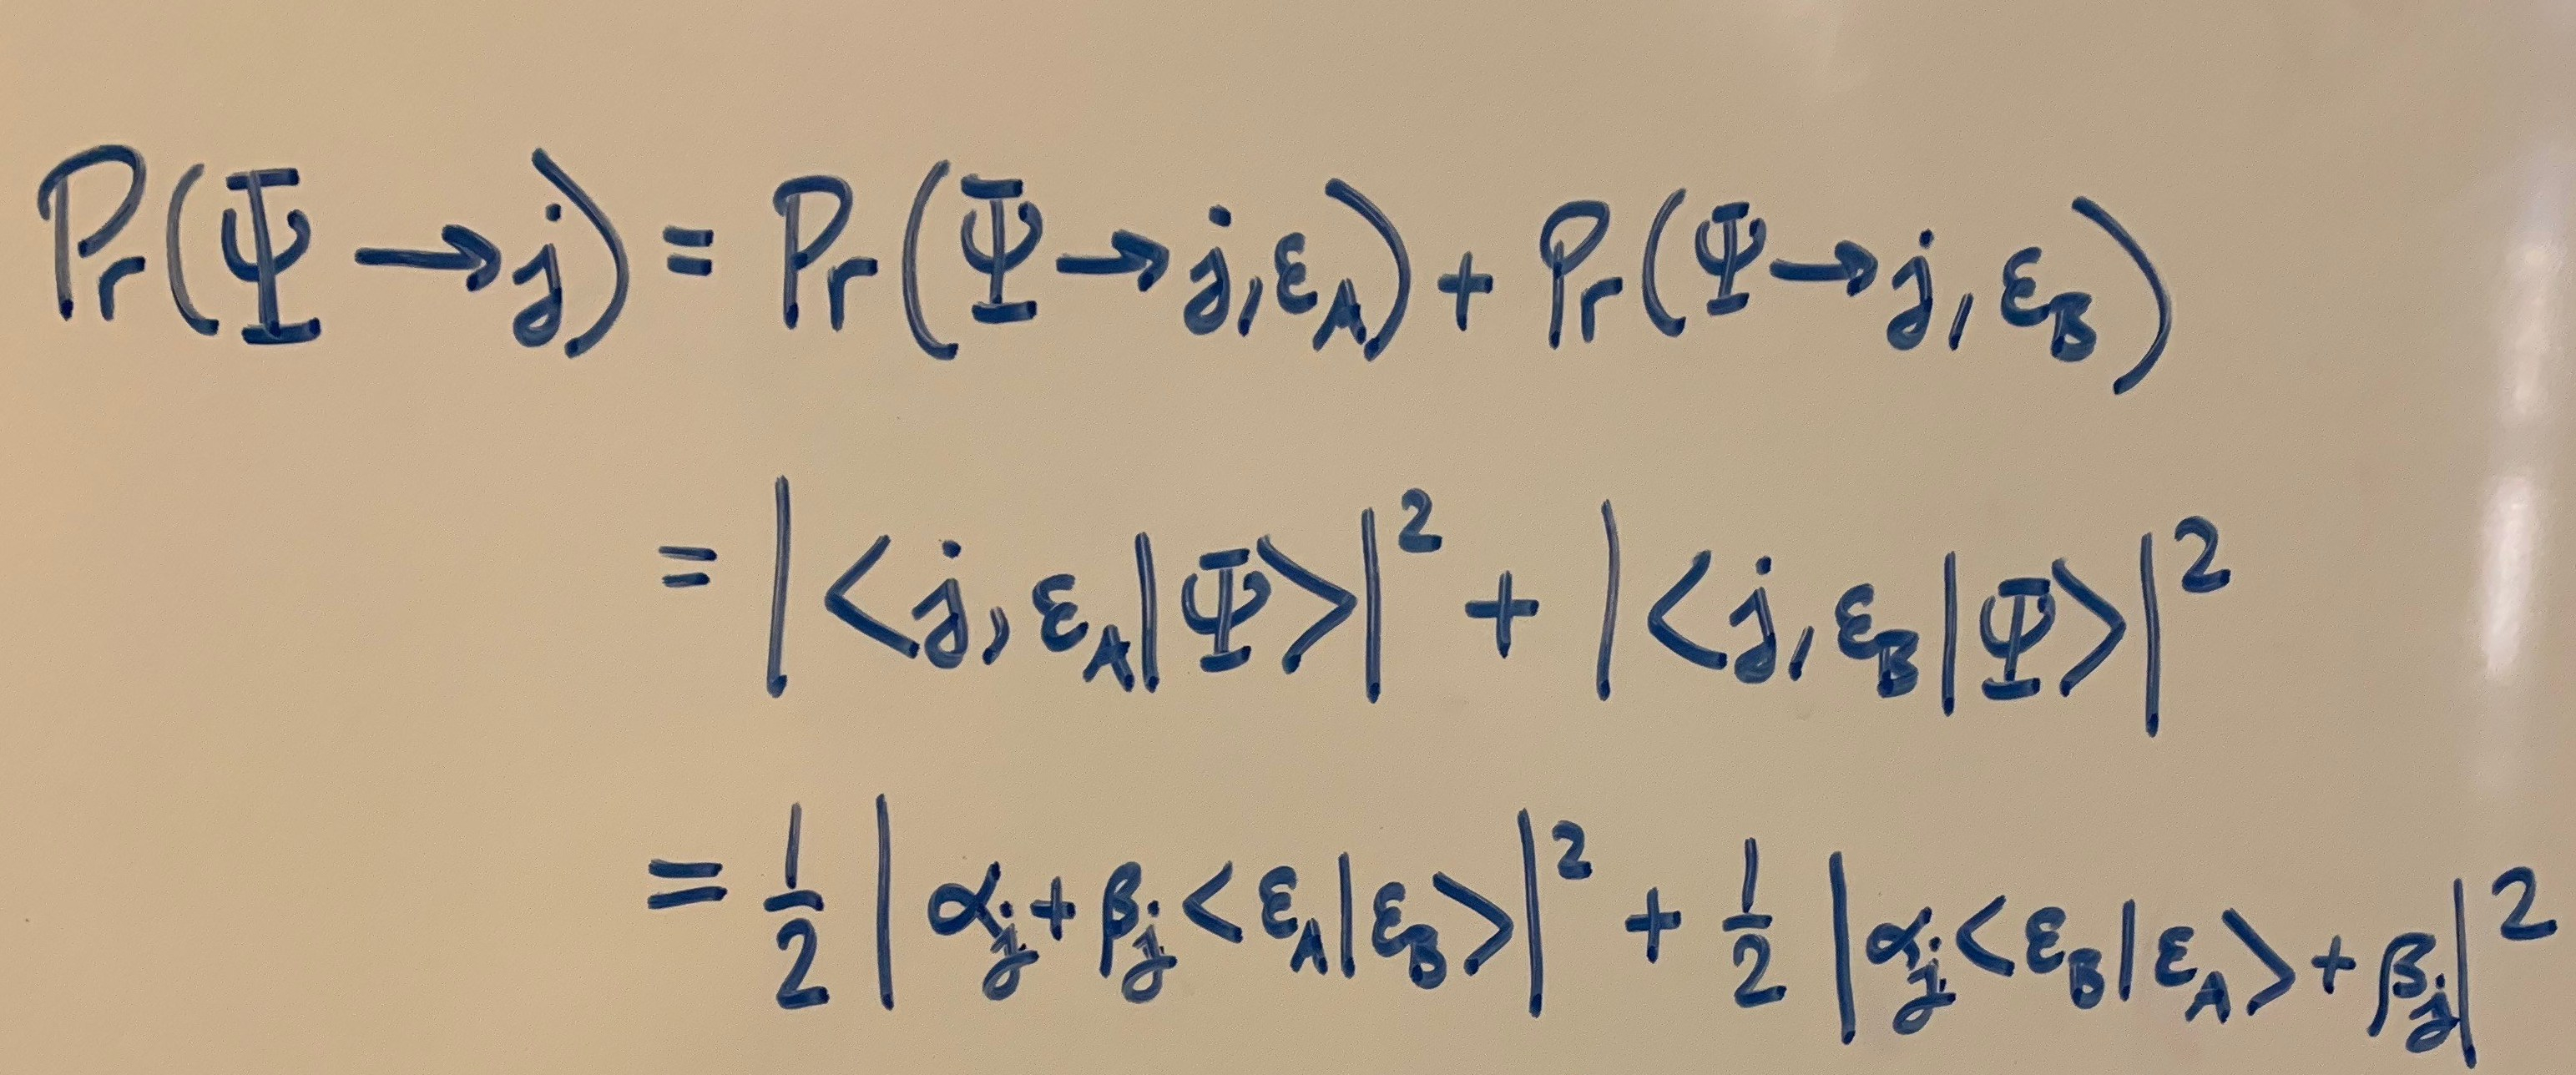 Pr(Ψ → j) = Pr(Ψ → j, ε_A) + Pr(Ψ → j, ε_B)
= |<j, ε_A|Ψ>|² + |<j, ε_B|Ψ>|²
= 1/2 |α_j + β_j <ε_A|ε_B>|² + 1/2 |α_j <ε_B|ε_A> + β_j|²